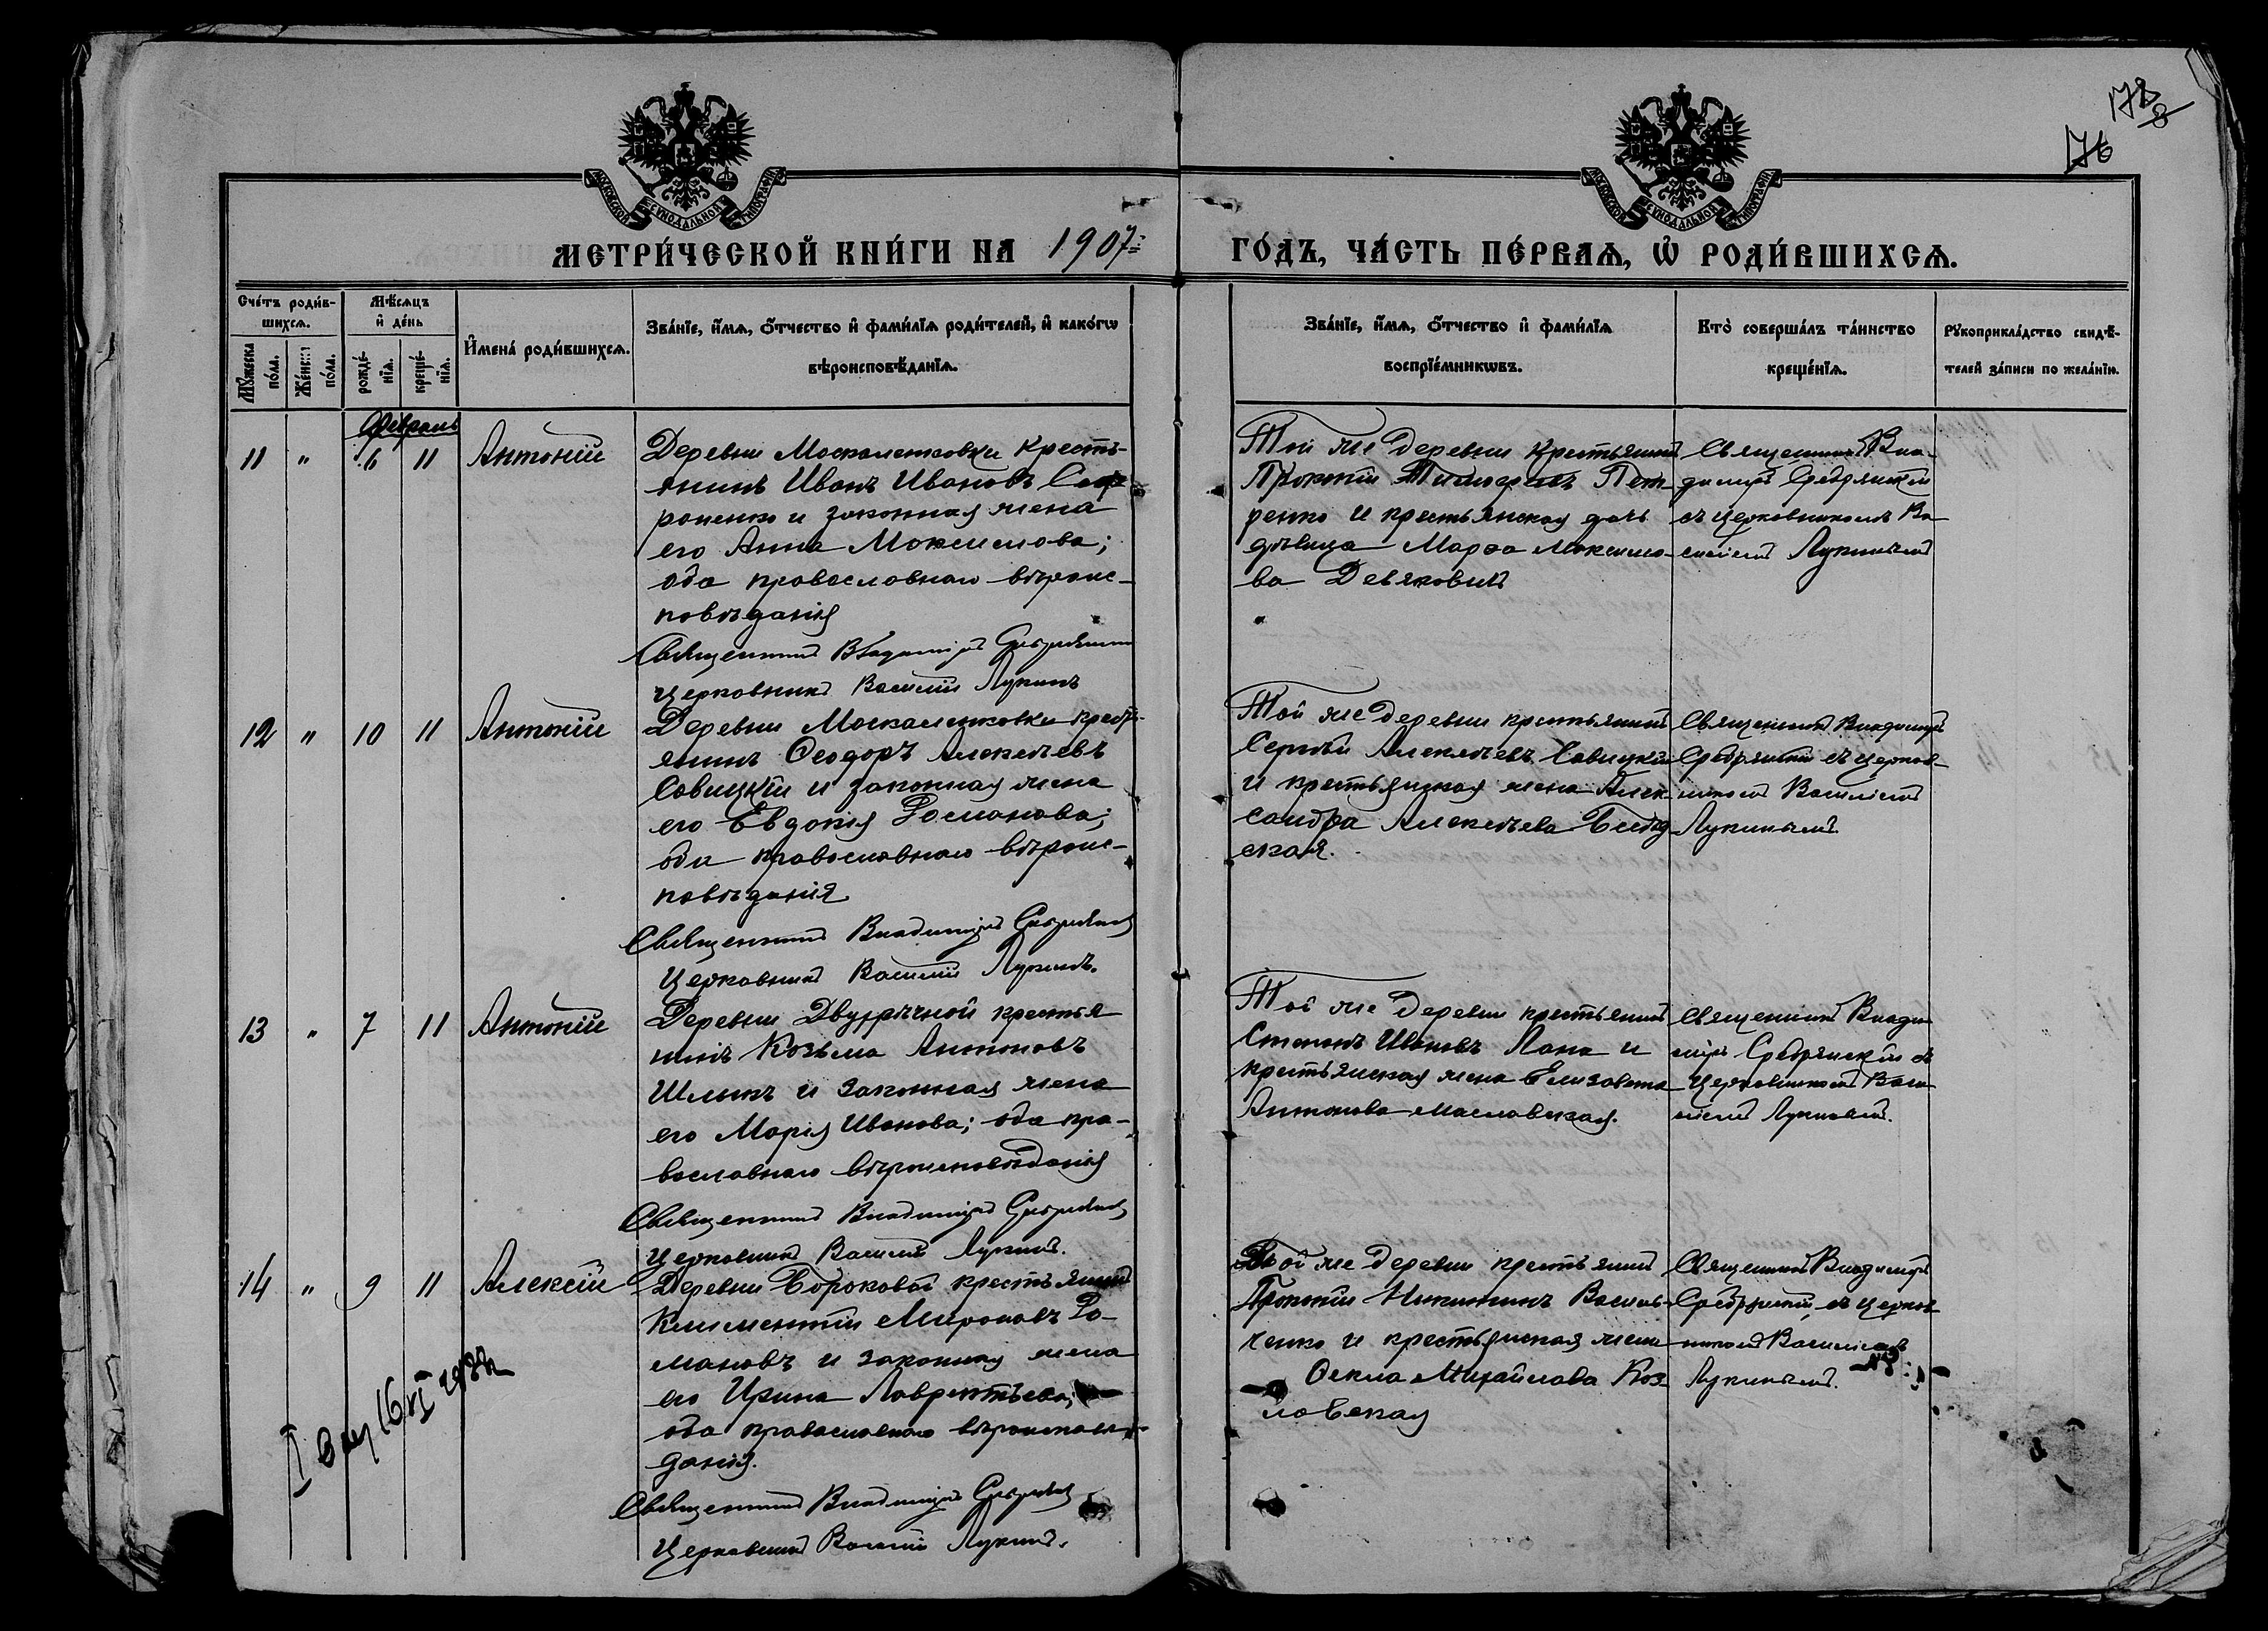 178
8
176
МОСКОВСКОЙ СУНОДАЛЬНОЙ ТИПОГРАФІИ
МОСКОВСКОЙ СУНОДАЛЬНОЙ ТИПОГРАФІИ
МЕТРИ́ЧЕСКОЙ КНИ́ГИ НА 1907
ГО́ДЪ, ЧА́СТЬ ПЕ́РВАѦ, Ѡ҆ РОДИ́ВШИХСѦ.
Сче́тъ роди́в-
шихсѧ.
Мꙋ́жеска по́ла.
Же́нска по́ла.
Мѣ́сѧцъ
и҆ де́нь
рожде́-
нїѧ.
креще́-
нїѧ.
И҆мена̀ роди́вшихсѧ.
Зва́нїе, и҆́мѧ, ѻ҆́тчество и҆ фами́лїѧ роди́телей, и҆ како́гѡ
вѣроисповѣ́данїѧ.
Зва́нїе, и҆́мѧ, ѻ҆́тчество и҆ фами́лїѧ
воспрїе́мникѡвъ.
Кто̀ соверша́лъ та́инство
креще́нїѧ.
Рꙋкоприкла́дство свидѣ́-
телей за́писи по жела́нїю.
Февраль
11 " 6 11 Антоній
Деревни Москаленковки кресть-
янинъ Иванъ Ивановъ Соф
роненко и законная жена
его Анна Максимова;
оба православнаго вѣроис-
повѣданія
Священникъ Владиміръ Сребрянскій
Церковникъ Василій Лукинъ
Той же деревни крестьянинъ
Прокопій Тимофеевъ Пет-
ренко и крестьянская дочь
дѣвица Марѳа Максимо-
ва Девяковичъ
Священникъ Вла-
димиръ Сребрянскій
съ церковникомъ Ва
силіемъ Лукинымъ
12 " 10 11 Антоній
Деревни Москаленковки кресть-
янинъ Ѳеодоръ Алексѣевъ
Савицкій и законная жена
его Евдокія Романова;
оба православнаго вѣроис-
повѣданія
Священникъ Владиміръ Сребрянскій
Церковникъ Василій Лукинъ.
Той же деревни крестьянинъ
Сергѣй Алексѣевъ Савицкій
и крестьянская жена Алек
сандра Алексѣева
ская.
Священникъ Владимиръ
Сребрянскій съ церков-
никомъ Василіемъ
Лукинымъ.
13 " 7 11 Антоній
Деревни Двурѣчной крестья
нинъ Козьма Антоновъ
Шлыкъ и законная жена
его Марія Иванова; оба пра-
вославнаго вѣроисповѣданія
Священникъ Владиміръ Сребрянскій
Церковникъ Василій Лукинъ.
Той же деревни крестьянинъ
Степанъ Ивановъ Лапа и
крестьянская жена Елизавета
Антонова Масловская.
Священникъ Влади
миръ Сребрянскій съ
церковникомъ Васи
ліемъ Лукинымъ.
14 " 9 11 Алексій
Деревни Бороковой крестьянинъ
Климентій Мироновъ Ро-
мановъ и законная жена
его Ирина Лаврентьева;
оба православнаго вѣроисповѣ-
данія.
Священникъ Владиміръ Сребрянскій
Церковникъ Василій Лукинъ.
Той же деревни крестьянинъ
Прокопій Никитинъ Василь-
ченко и крестьянская жена
Ѳекла Михайлова Коз-
ловская
Священникъ Владимиръ
Сребрянскій, съ церков
никомъ Василіемъ
Лукинымъ.